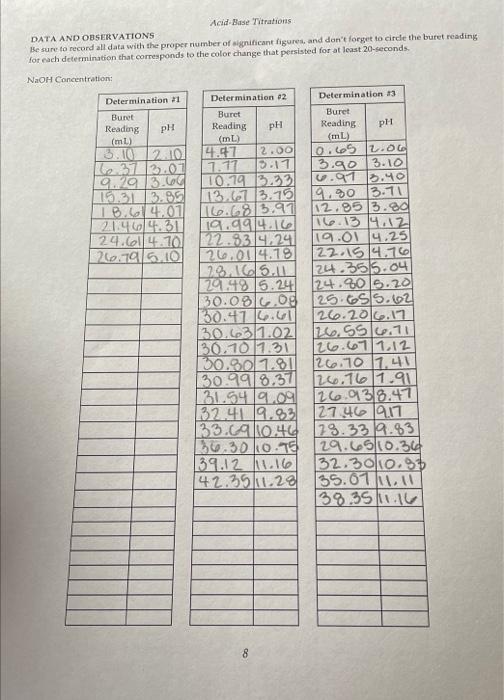 Acid-Base Titrations
DATA AND OBSERVATIONS
Be sure to record all data with the proper number of significant figures, and don't forget to circle the buret reading
for each determination that corresponds to the color change that persisted for at least 20-seconds.
NaOH Concentration:
Determination #1
Buret Reading (mL) pH
3.10 2.10
6.37 3.07
9.29 3.66
15.31 3.85
18.61 4.07
21.46 4.31
24.61 4.70
26.79 5.10
Determination #2
Buret Reading (mL) pH
4.47 2.00
7.77 3.17
10.79 3.33
13.67 3.75
16.68 3.97
19.99 4.16
22.83 4.24
26.01 4.78
28.16 5.11
29.48 5.24
30.08 6.08
30.47 6.61
30.63 7.02
30.70 7.31
30.80 7.81
30.99 8.37
31.54 9.09
32.41 9.83
33.69 10.46
36.30 10.75
39.12 11.16
42.35 11.28
Determination #3
Buret Reading (mL) pH
0.65 2.06
3.90 3.10
6.97 3.40
9.80 3.71
12.85 3.80
16.13 4.12
19.01 4.25
22.15 4.76
24.35 5.04
24.80 5.20
25.65 5.62
26.20 6.17
26.55 6.71
26.67 7.12
26.70 7.41
26.76 7.91
26.93 8.47
27.46 9.17
28.33 9.83
29.65 10.36
32.30 10.83
35.07 11.11
38.35 11.16
8